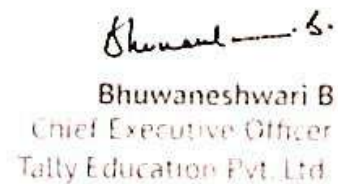 Bhuwaneshwari B
Chief Executive Officer
Tally Education Pvt. Ltd.